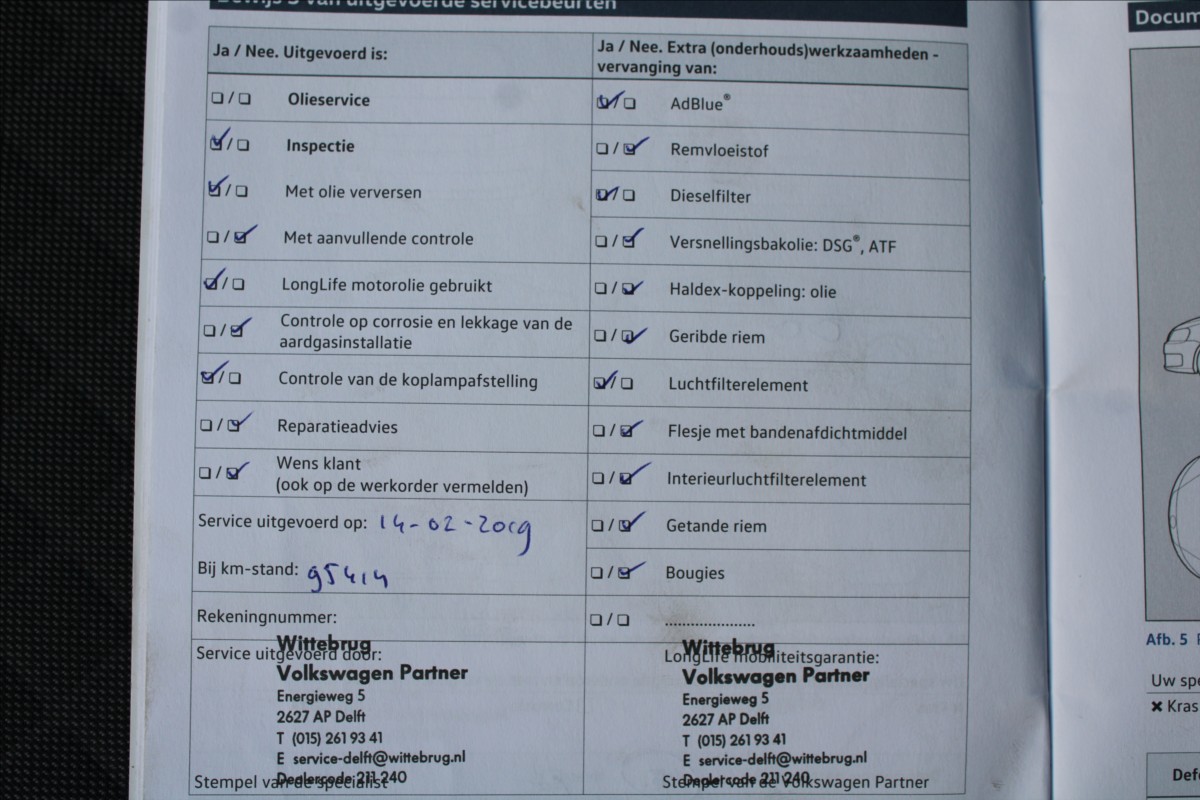 Bewijs 5 van uitgevoerde servicebeurten
Ja / Nee. Uitgevoerd is:
Olieservice
Inspectie
Met olie verversen
Met aanvullende controle
LongLife motorolie gebruikt
Controle op corrosie en lekkage van de
aardgasinstallatie
Controle van de koplampafstelling
Reparatieadvies
Wens klant
(ook op de werkorder vermelden)
Service uitgevoerd op: 14-02-2019
Bij km-stand: 95414
Rekeningnummer:
Service uitgevoerd door:
Wittebrug
Volkswagen Partner
Energieweg 5
2627 AP Delft
T (015) 261 93 41
E service-delft@wittebrug.nl
Dealercode 211 240
Stempel van de specialist
Ja / Nee. Extra (onderhouds)werkzaamheden -
vervanging van:
AdBlue®
Remvloeistof
Dieselfilter
Versnellingsbakolie: DSG®, ATF
Haldex-koppeling: olie
Geribde riem
Luchtfilterelement
Flesje met bandenafdichtmiddel
Interieurluchtfilterelement
Getande riem
Bougies
....................
LongLife mobiliteitsgarantie:
Wittebrug
Volkswagen Partner
Energieweg 5
2627 AP Delft
T (015) 261 93 41
E service-delft@wittebrug.nl
Dealercode 211 240
Stempel van de Volkswagen Partner
Docum
Afb. 5
Uw spe
✖ Kras
Defe